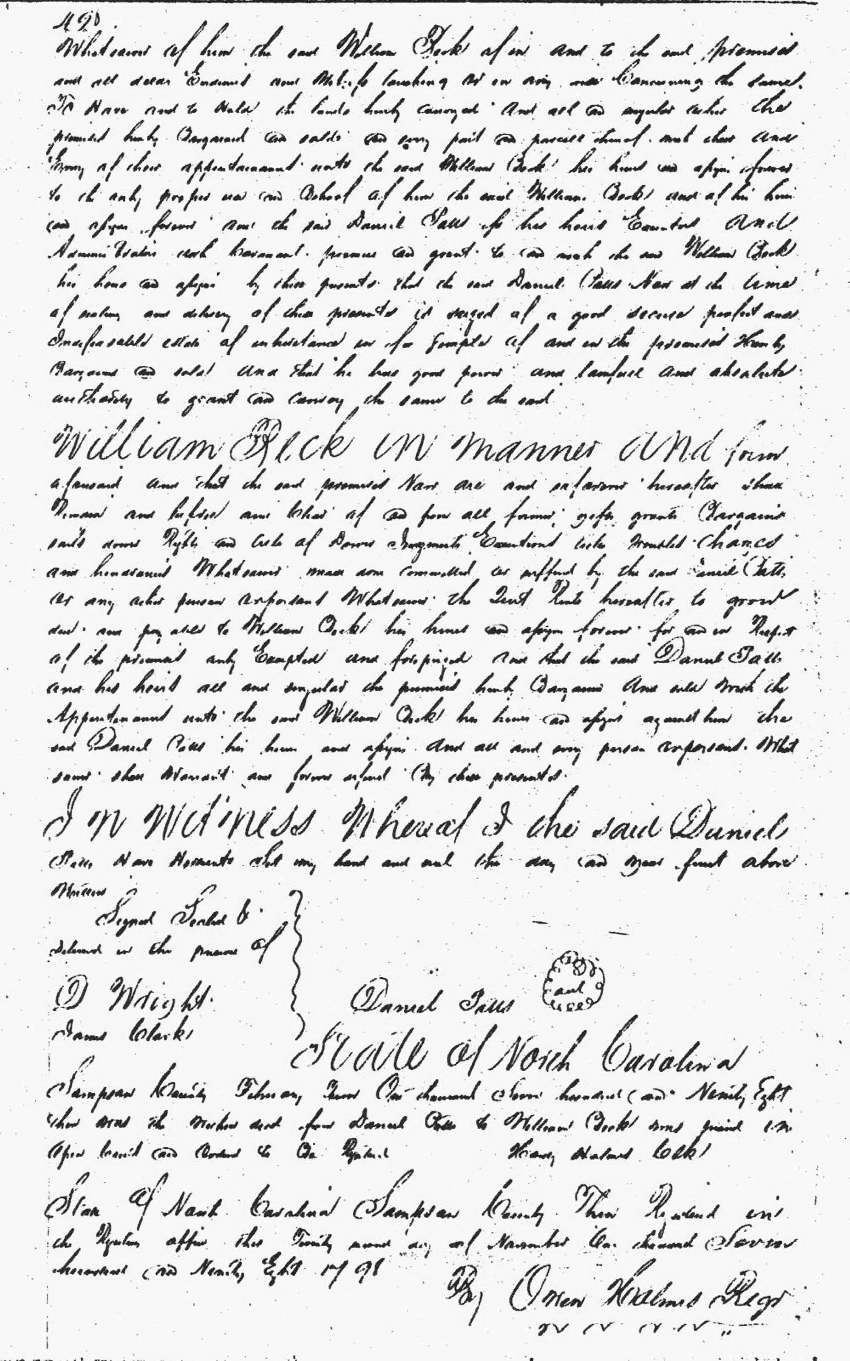 420
Whatsoever of him the said William Peck of in and to the said premises
and all deeds Evidences and touching or in any wise Concerning the same.
To Have and to Hold the lands hereby conveyed and all and singular other the
premises hereby Bargained and sold and every part and parcel thereof with their and
Every of their appurtenances unto the said William Peck his heirs and assigns forever
to the only proper use and Behoof of him the said William Peck and of his heirs
and assigns forever and the said Daniel Falls for his heirs Executors and
Administrators doth Covenant promise and grant to and with the said William Peck
his heirs and assigns by these presents that the said Daniel Falls Now at the time
of sealing and delivery of these presents is seized of a good secure perfect and
Indefeasable estate of inheritance in fee simple of and in the premises Hereby
Bargained and sold and that he has good power and lawfull and absolute
authority to grant and convey the same to the said
William Peck in manner and form
aforesaid and that the said premises Now are and so forever hereafter shall
Remain and be free and Clear of and from all former gifts grants Bargains
sales dower Rights and title of Dower Judgments Executions titles troubles Chances
and Whatsoever made done committed or suffered by the said Daniel Falls
or any other person or persons Whatsoever the Quit Rents hereafter to grow
due and payable to William Peck his heirs and assigns forever for and in Respect
of the premises only Excepted and foreprized And that the said Daniel Falls
and his heirs all and singular the premises hereby Bargained And sold with the
Appurtenances unto the said William Peck his heirs and assigns against him the
said Daniel Falls his heirs and assigns and all and every person or persons What
soever shall Warrant and forever defend by these presents
In Witness Whereof I the said Daniel
Falls Have Hereunto Set my hand and seal the day and year first above
Written
Signed Sealed &
delivered in the presence of
D Wright
James Clark
Daniel Falls seal
State of North Carolina
Sampson County February Term One thousand Seven hundred and Ninety Eight
then was the within deed from Daniel Falls to William Peck was proved in
Open Court and Ordered to Be Registered
Hardy Holmes Clk
State of North Carolina Sampson County Then Registered in
the Registers office this Twenty second day of November One thousand Seven
hundred and Ninety Eight 1798
By Owen Holmes Regr